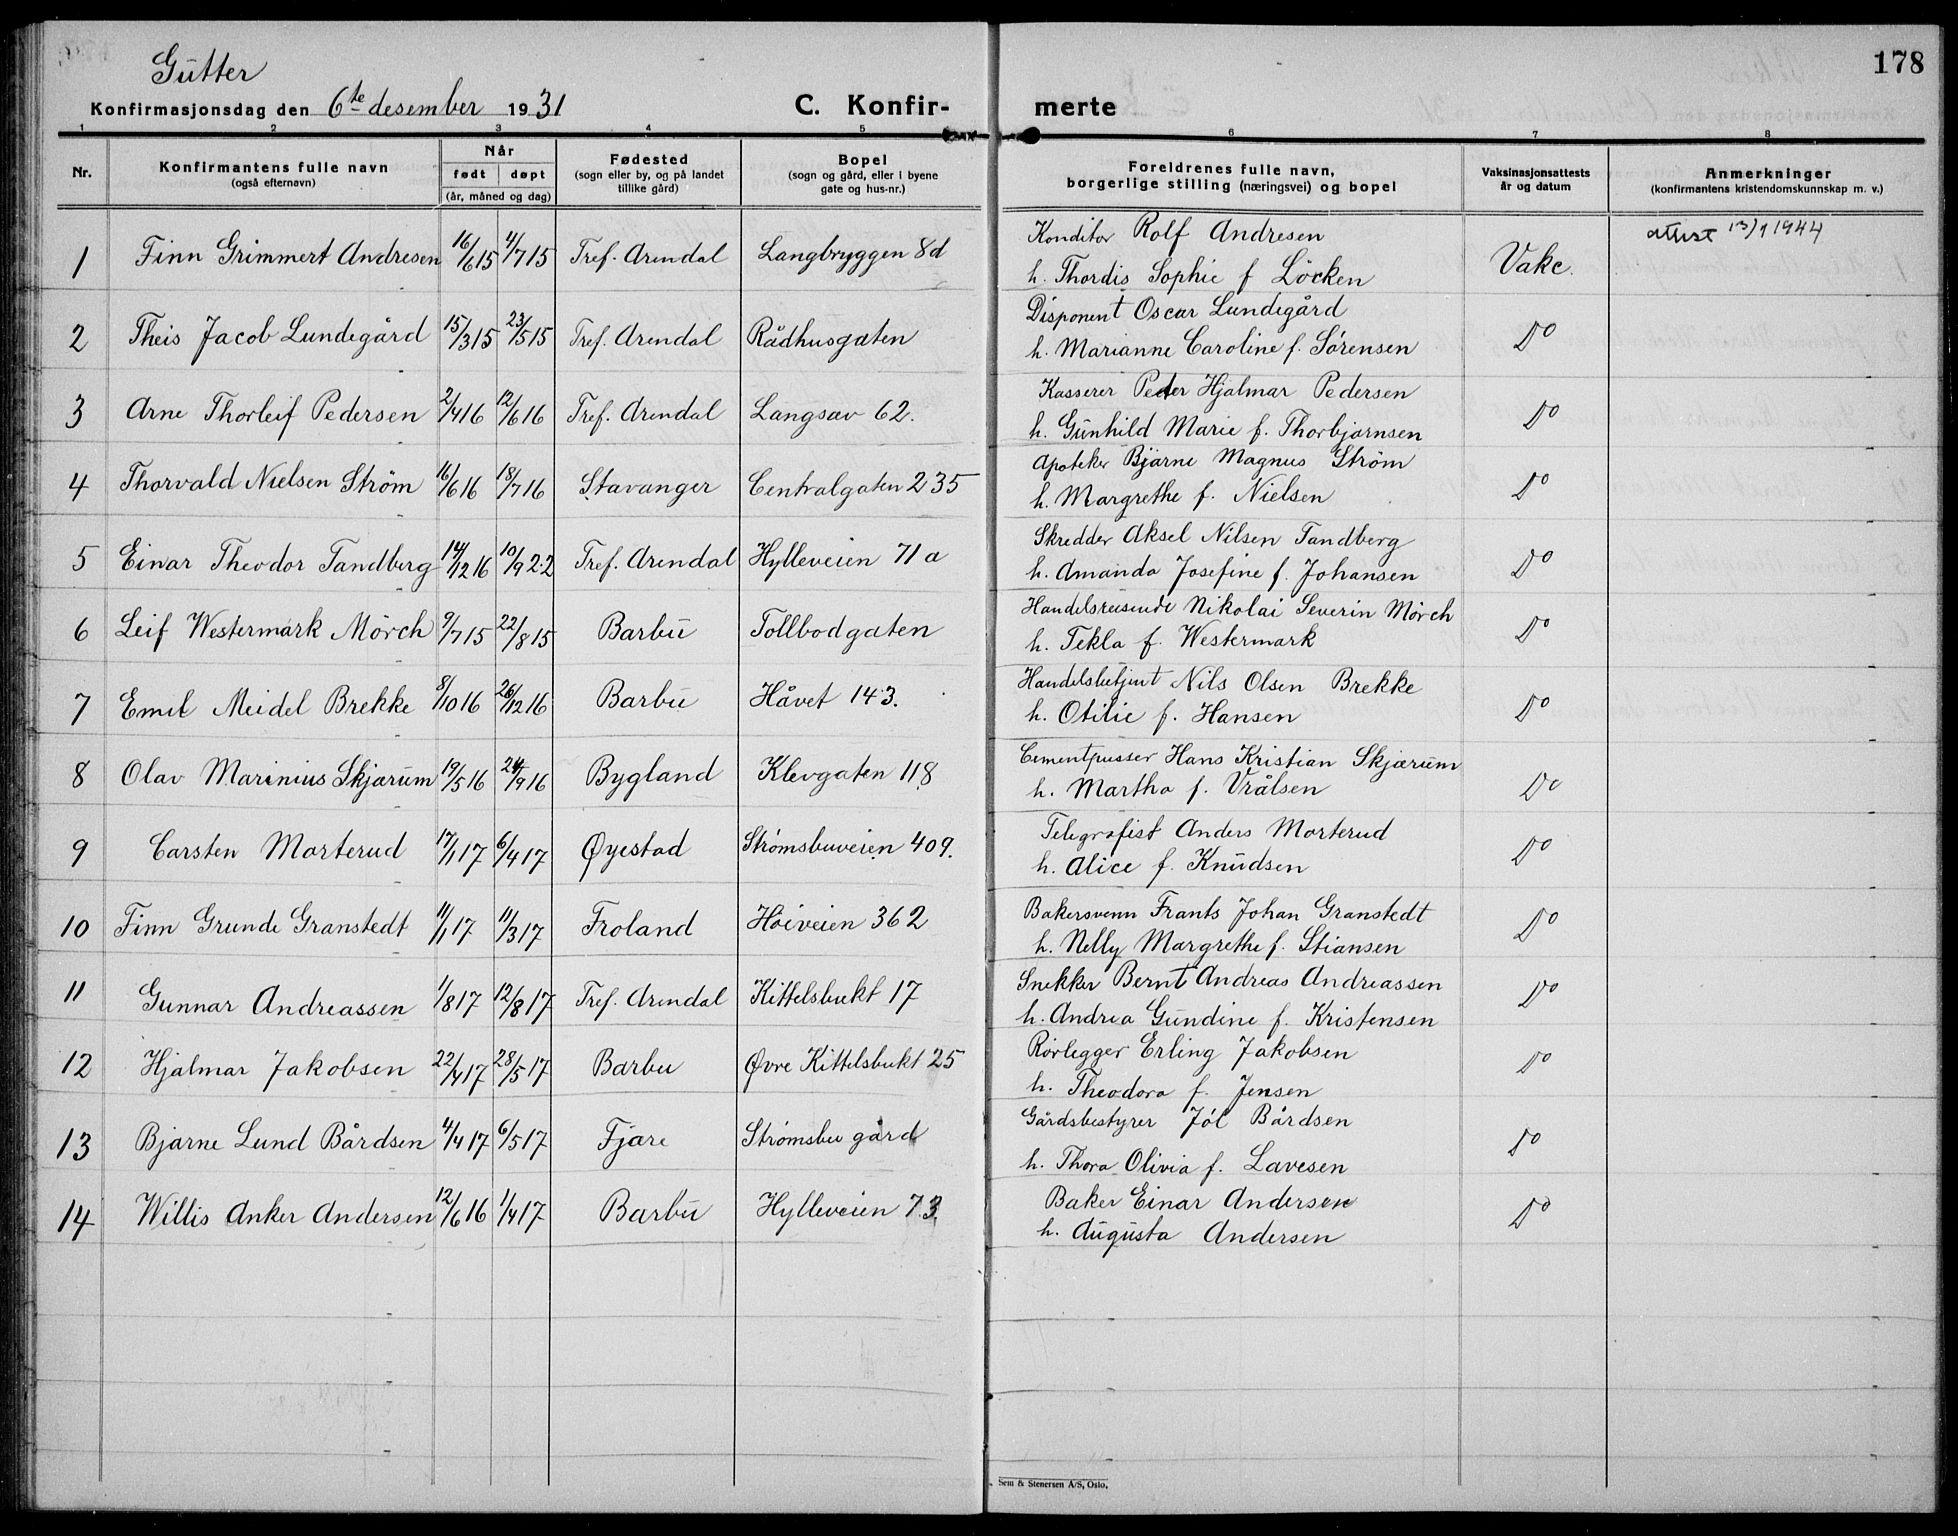 178
Gutter
Konfirmasjonsdag den 6te desember 1931
C. Konfirmerte
1 2 3 4 5 6 7 8
Nr. Konfirmantens fulle navn (også efternavn) Når født døpt (år, måned og dag) Fødested (sogn eller by, og på landet tillike gård) Bopel (sogn og gård, eller i byene gate og hus-nr.) Foreldrenes fulle navn, borgerlige stilling (næringsvei) og bopel Vaksinasjonsattests år og datum Anmerkninger (konfirmantens kristendomskunnskap m. v.)
1 Finn Grimmert Andresen 16/6 15 4/7 15 Tref. Arendal Langbryggen 8d Konditor Rolf Andresen Vakc. attest 13/1 1944
h. Thordis Sophie f Löcken
2 Theis Jacob Lundegård 15/3 15 23/5 15 Tref. Arendal Rådhusgaten Disponent Oscar Lundegård Do
h. Marianne Caroline f. Sørensen
3 Arne Thorleif Pedersen 2/4 16 12/6 16 Tref. Arendal Langsæv 62. Kasserer Peder Hjalmar Pedersen Do
h. Gunhild Marie f. Thorbjørnsen
4 Thorvald Nielsen Ström 16/6 16 18/7 16 Stavanger Centralgaten 235 Apoteker Bjarne Magnus Ström Do
h. Margrethe f. Nielsen
5 Einar Theodor Tandberg 14/12 16 10/9 22 Tref. Arendal Hylleveien 71a Skredder Aksel Nilsen Tandberg Do
h. Amanda Josefine f. Johansen
6 Leif Westermark Mörch 9/7 15 22/8 15 Barbu Tollbodgaten Handelsreisende Nikolai Severin Mörch Do
h. Tekla f. Westermark
7 Emil Meidel Brekke 8/10 16 26/12 16 Barbu Håvet 143. Handelsbetjent Nils Olsen Brekke Do
h. Otilie f. Hansen
8 Olav Marinius Skjærum 19/5 16 24/9 16 Bygland Klevgaten 118 Cementpusser Hans Kristian Skjærum Do
h. Martha f. Vrålsen
9 Carsten Morterud 17/1 17 6/4 17 Øyestad Strømsbuveien 409. Telegrafist Anders Morterud Do
h. Alice f. Knudsen
10 Finn Grunde Granstedt 11/1 17 11/3 17 Froland Höiveien 362 Bakersvenn Frants Johan Granstedt Do
h. Nelly Margrethe f. Stiansen
11 Gunnar Andreassen 1/8 17 12/8 17 Tref. Arendal Kittelsbukt 17 Snekker Bernt Andreas Andreassen Do
h. Andrea Gundine f. Kristensen
12 Hjalmar Jakobsen 22/4 17 28/5 17 Barbu Øvre Kittelsbukt 25 Rørlegger Erling Jakobsen Do
h. Theodora f. Jensen
13 Bjarne Lund Bårdsen 4/4 17 6/5 17 Fjære Strømsbu gård Gårdsbestyrer Jól Bårdsen Do
h. Thora Olivia f. Lavesen
14 Willis Anker Andersen 12/6 16 1/4 17 Barbu Hylleveien 73. Baker Einar Andersen Do
h. Augusta Andersen
Sem & Stenersen A/S, Oslo.